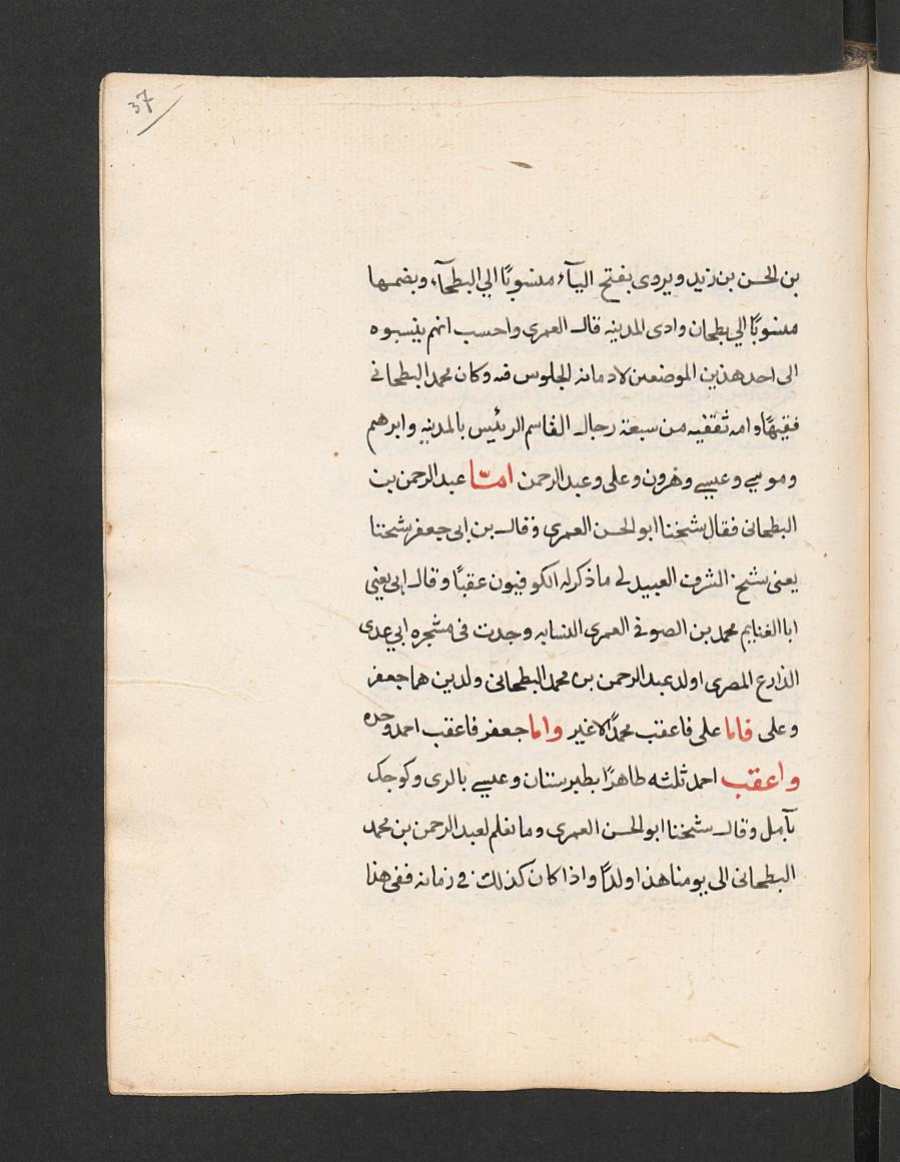 37
بن الحسن بن زيد ويروى بفتح الباء منسوبًا الى البطحآء وبضمها
منسوبًا الى بطحان وادى المدينه قال العمرى واحسب انهم ينسبوه
الى احد هذين الموضعين لادمانه الجلوس فيه وكان محمد البطحانى
فقيهًا وامه ثقفيه من سبعة رجال القاسم الرئيس بالمدينه وابرهم
وموسى وعيسى وهرون وعلى وعبد الرحمن امّا عبد الرحمن بن
البطحانى فقال شيخنا ابو الحسن العمرى وقال بن ابى جعفر شيخنا
يعنى شيخ الشرف العبيدلى ما ذكر له الكوفيون عقبًا وقال ابى يعنى
ابا الغنايم محمد بن الصوفى العمرى النسابه وجدت فى مشجره ابى عدى
الذارع المصرى اولد عبد الرحمن بن محمد البطحانى ولدين هما جعفر
وعلى فاما على فاعقب محمدًا لا غير واما جعفر فاعقب احمد وحده
واعقب احمد ثلثه طاهرًا بطبرستان وعيسى بالرى وكوجك
بآمل وقال شيخنا ابو الحسن العمرى وما نعلم لعبد الرحمن بن محمد
البطحانى الى يومنا هذا ولدًا واذا كان كذلك فى زمانه ففى هذا